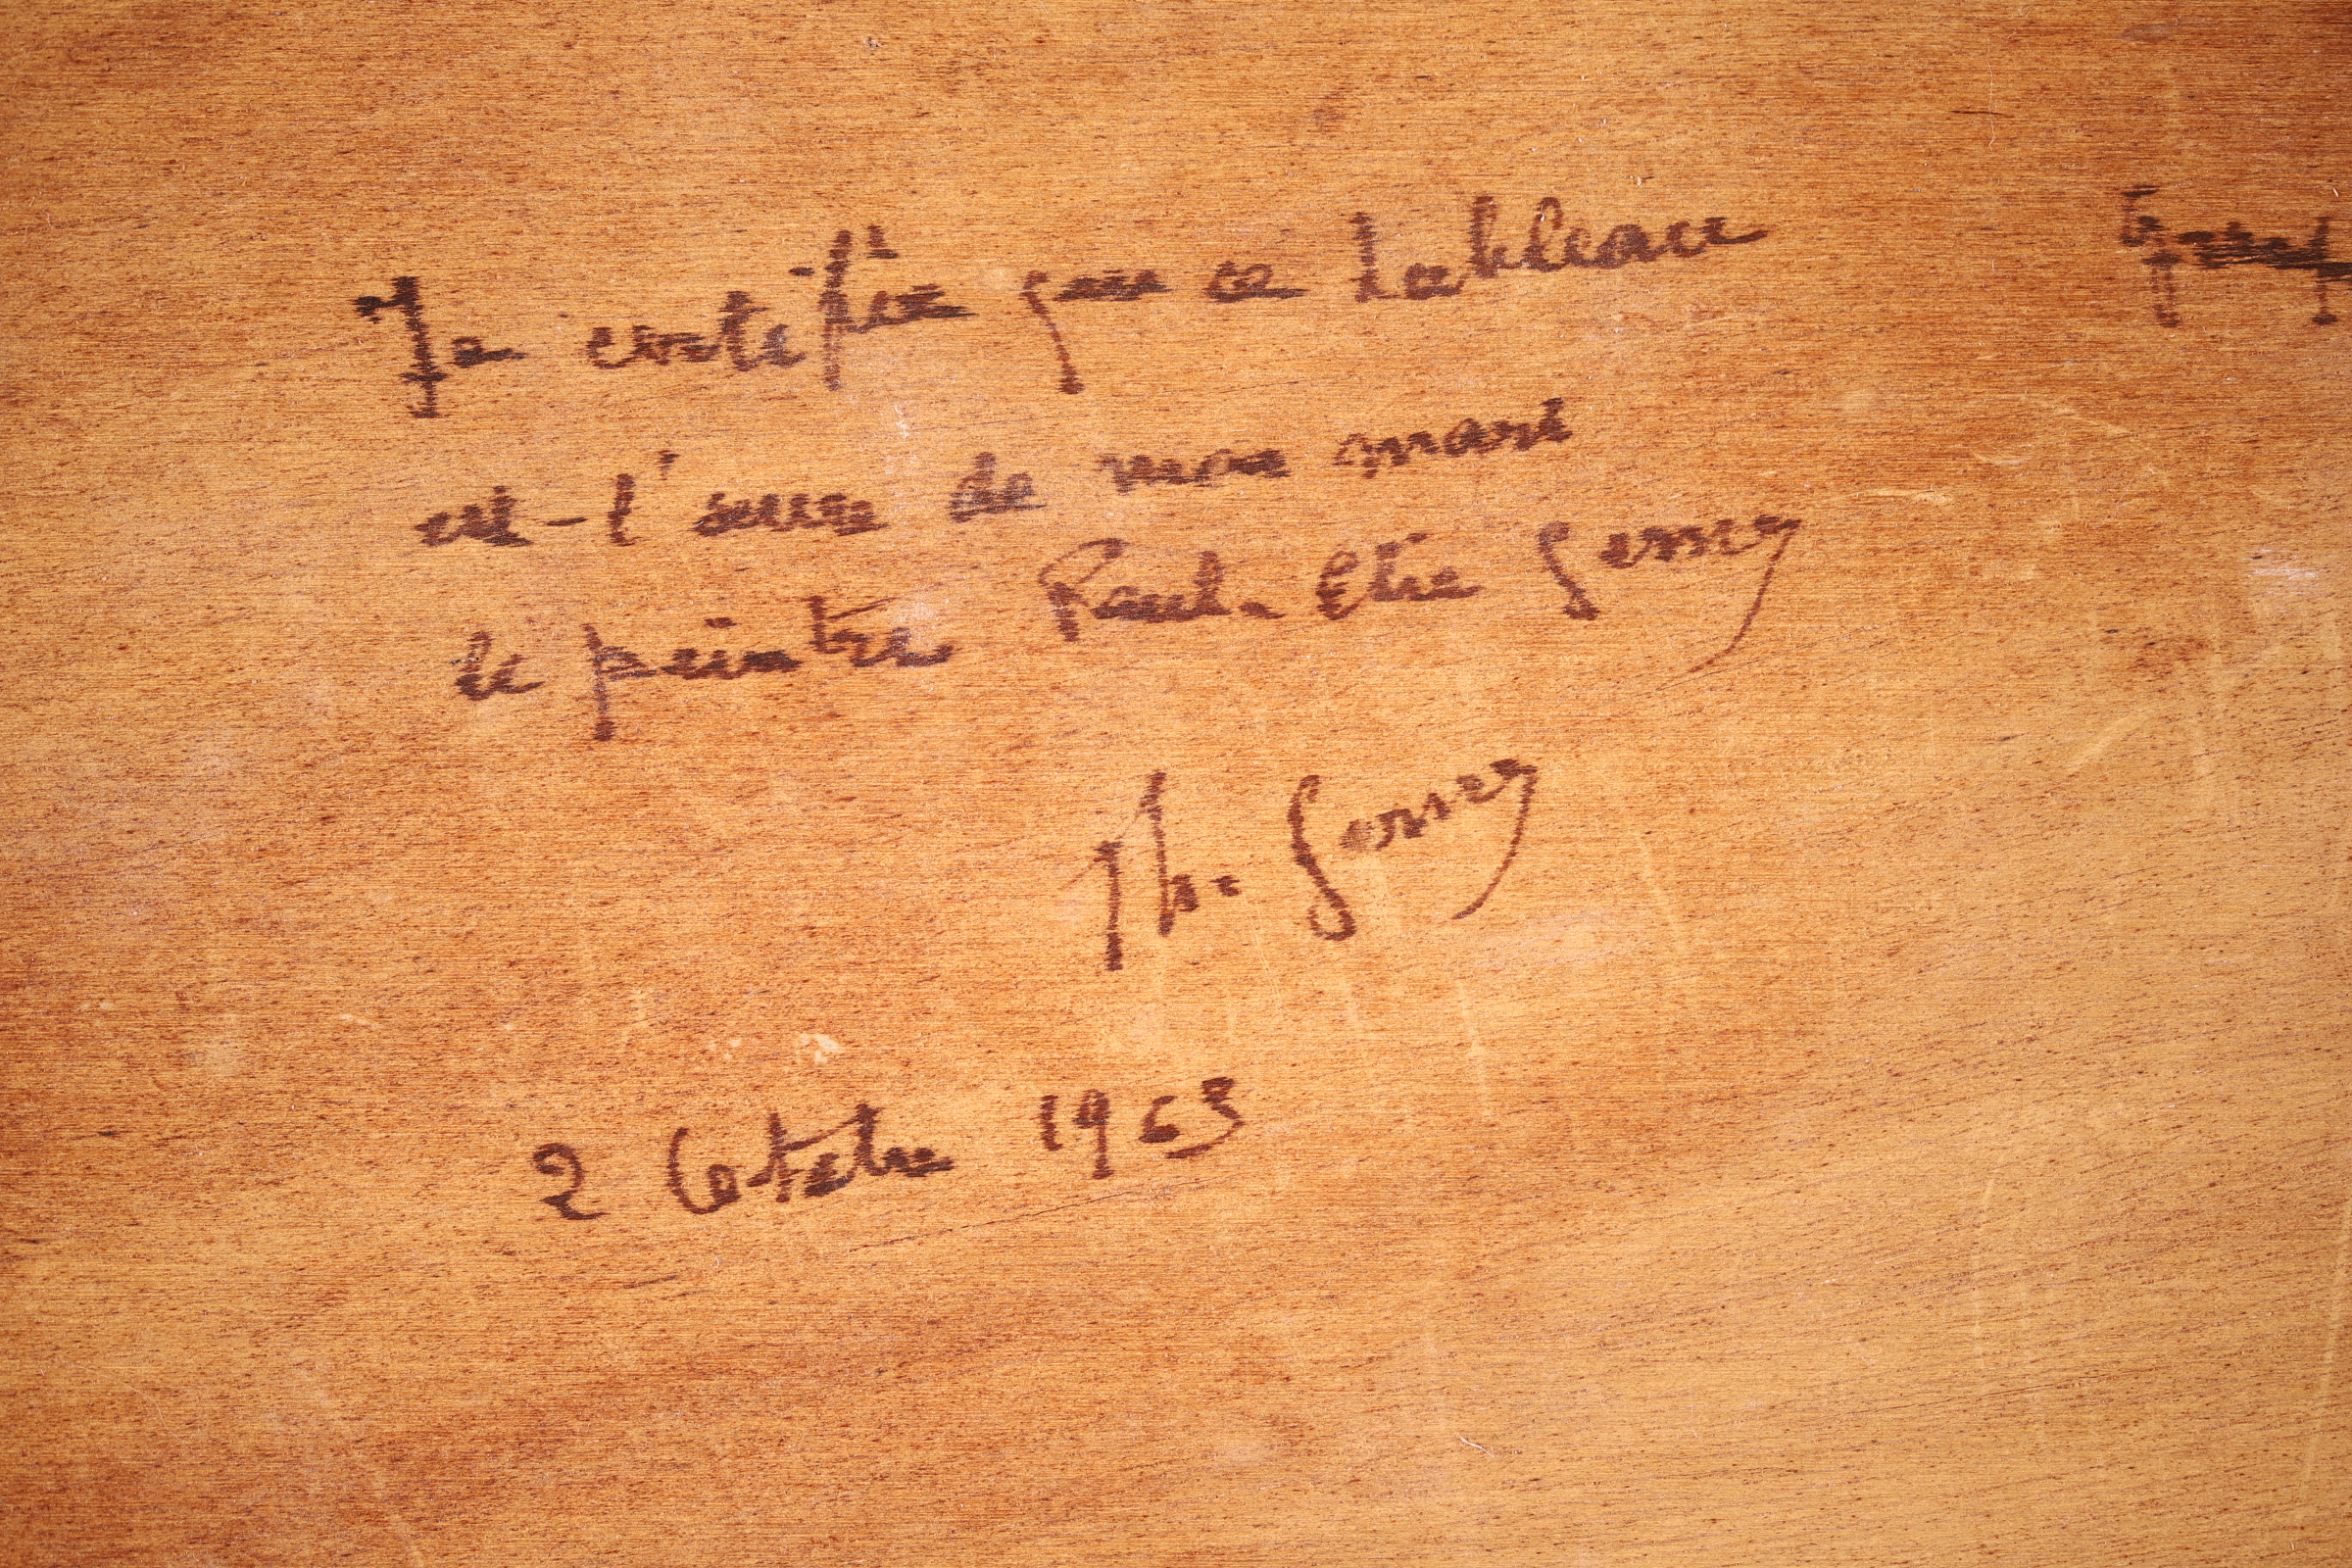 Je certifie que ce tableau
est l'œuvre de mon mari
le peintre Paul-Elie Gernez
Th. Gernez
2 Octobre 1963